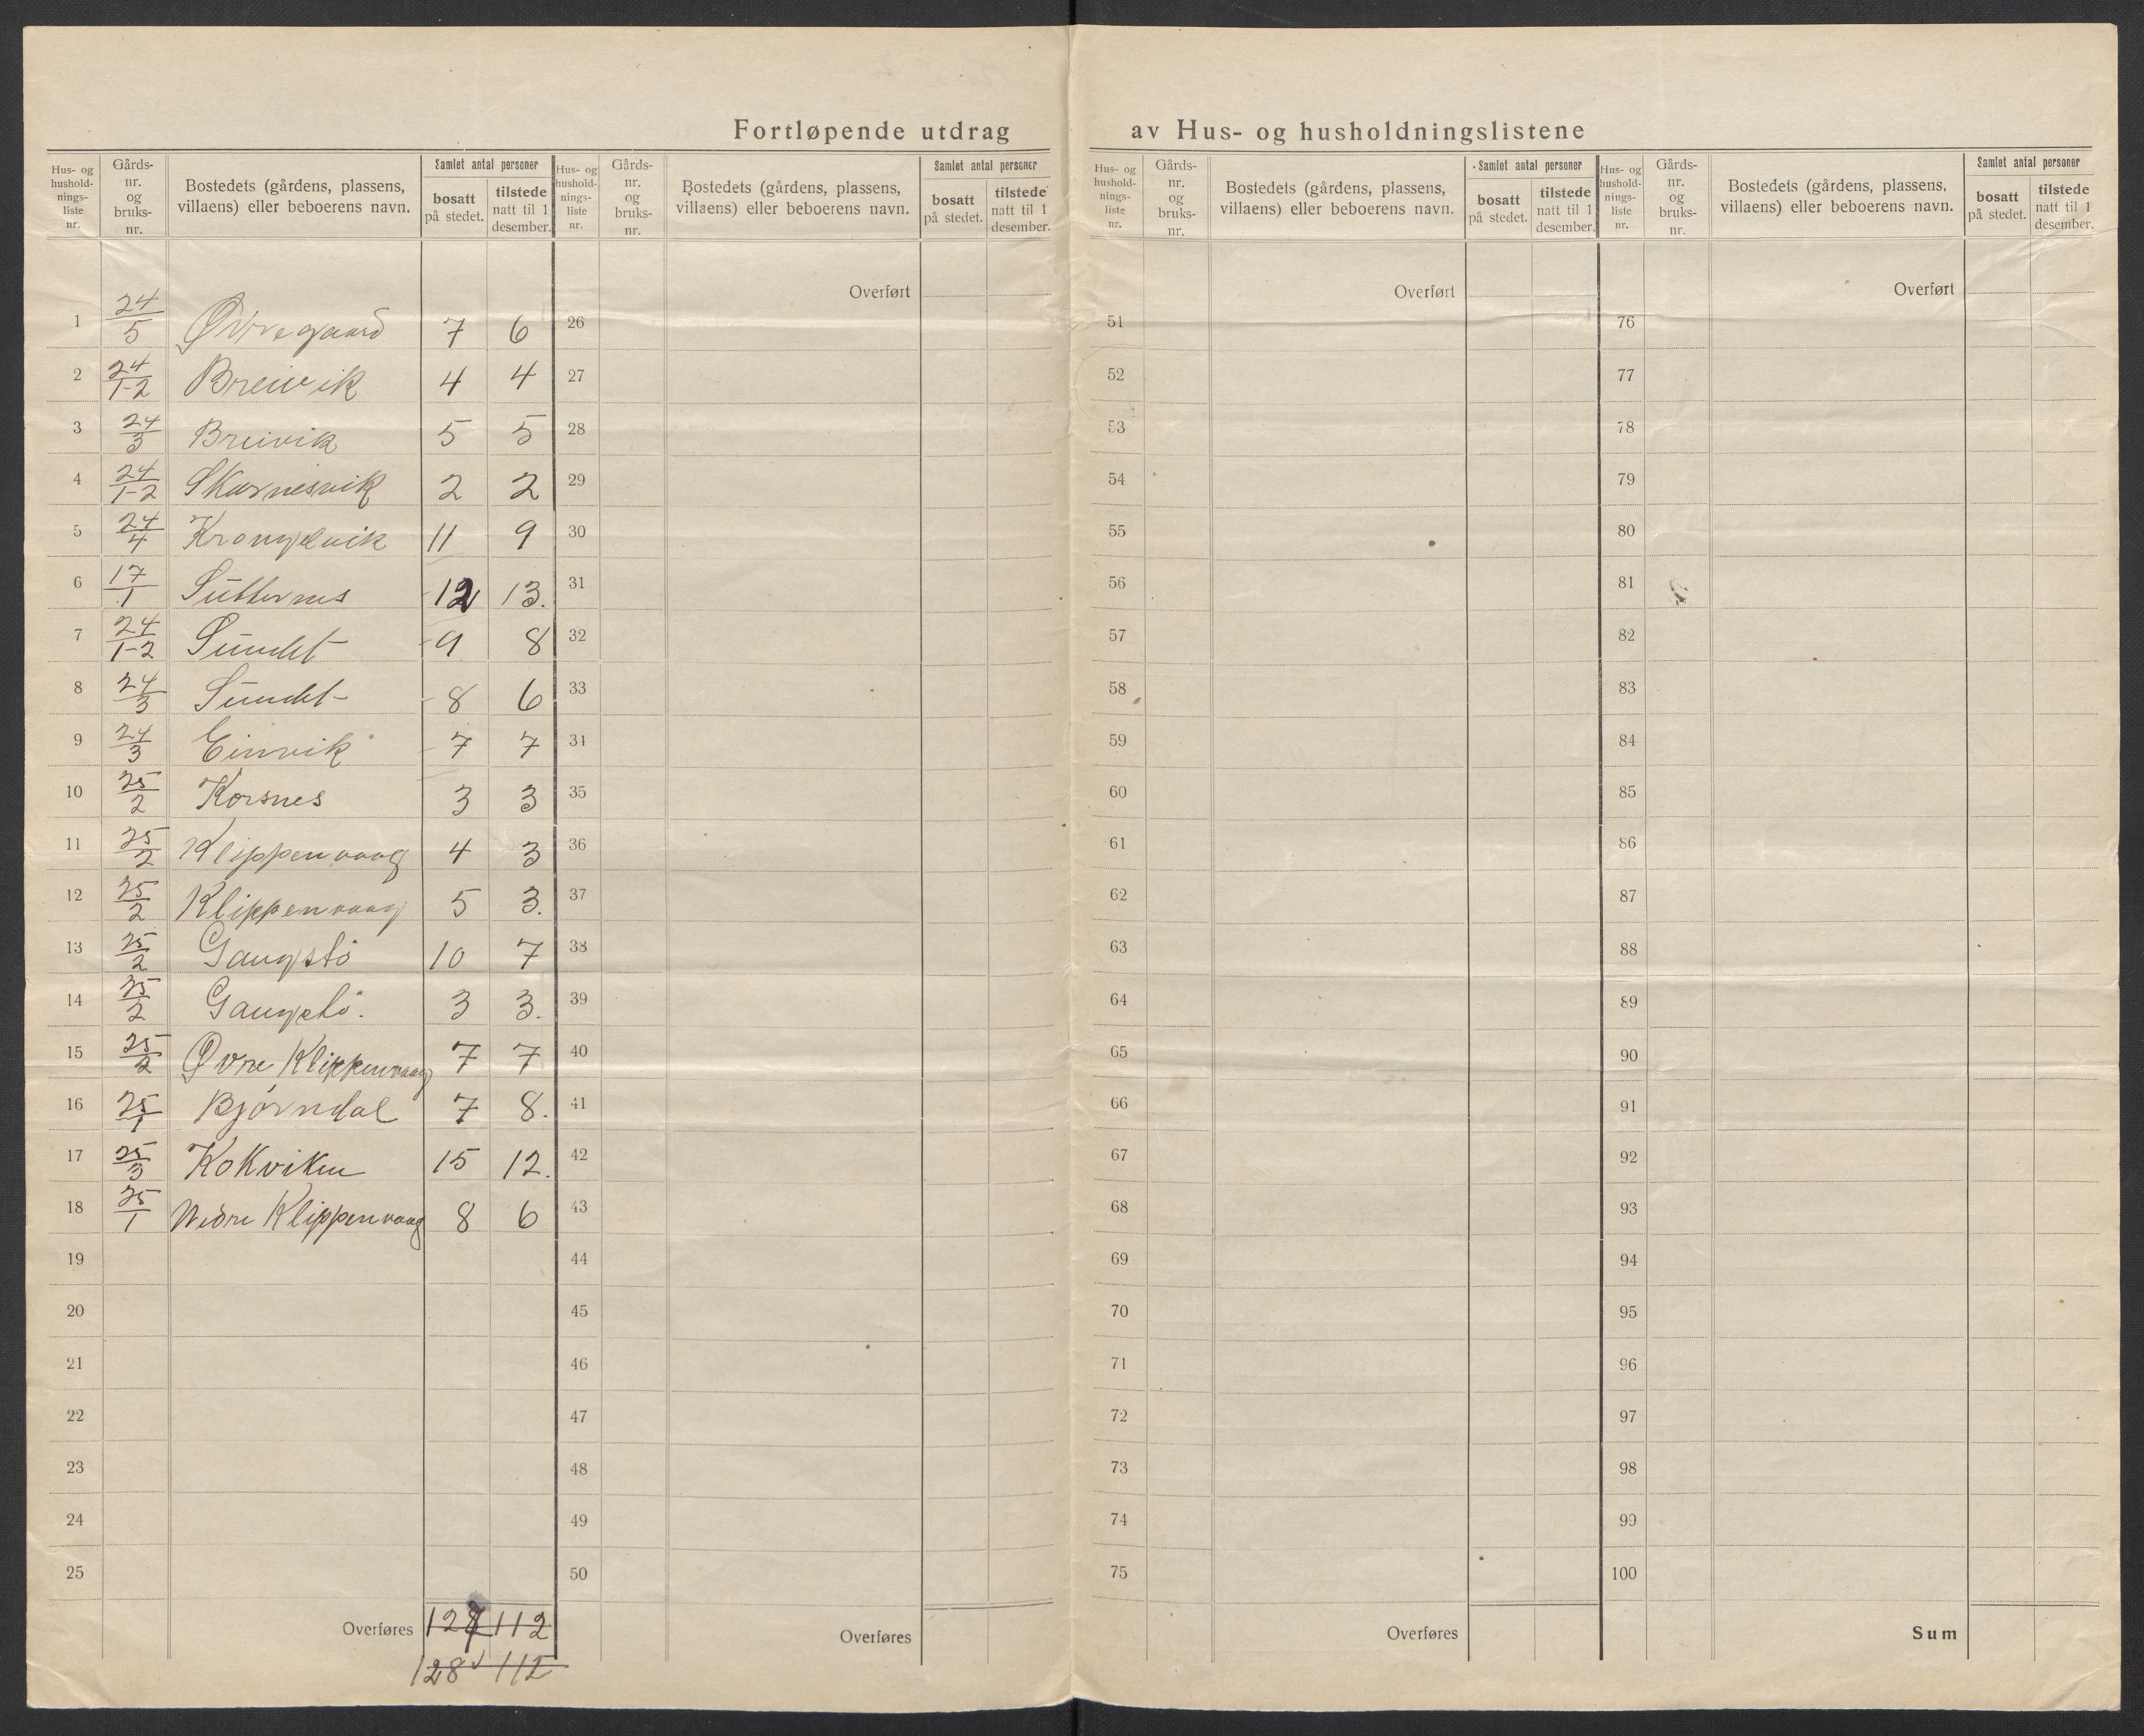 Fortløpende utdrag av Hus- og husholdningslistene
Hus- og husholdnings- liste nr. | Gårds- nr. og bruks- nr. | Bostedets (gårdens, plassens, villaens) eller beboerens navn. | Samlet antal personer | bosatt på stedet. | tilstede natt til 1 desember.
Hus- og husholdnings- liste nr. | Gårds- nr. og bruks- nr. | Bostedets (gårdens, plassens, villaens) eller beboerens navn. | Samlet antal personer | bosatt på stedet. | tilstede natt til 1 desember.
Hus- og husholdnings- liste nr. | Gårds- nr. og bruks- nr. | Bostedets (gårdens, plassens, villaens) eller beboerens navn. | Samlet antal personer | bosatt på stedet. | tilstede natt til 1 desember.
Hus- og husholdnings- liste nr. | Gårds- nr. og bruks- nr. | Bostedets (gårdens, plassens, villaens) eller beboerens navn. | Samlet antal personer | bosatt på stedet. | tilstede natt til 1 desember.
Overført Overført Overført
1 24/5 Øvregaard 7 6 26 51 76
2 24/1-2 Breivik 4 4 27 52 77
3 24/3 Breivik 5 5 28 53 78
4 24/1-2 Skarvesvik 2 2 29 54 79
5 24/4 Krongelvik 11 9 30 55 80
6 17/1 12 13. 31 56 81
7 24/1-2 Sundet 9 8 32 57 82
8 24/3 Sundet 8 6 33 58 83
9 24/3 Einvik 7 7 34 59 84
10 25/2 Korsnes 3 3 35 60 85
11 25/2 Klippenvaag 4 3 36 61 86
12 25/2 Klippenvaag 5 3. 37 62 87
13 25/2 Gangstö 10 7 38 63 88
14 25/2 Gangstö. 3 3. 39 64 89
15 25/2 Øvre Klippenvaag 7 7 40 65 90
16 25/1 Bjørndal 7 8. 41 66 91
17 25/3 Kokviken 15 12. 42 67 92
18 25/1 Nedre Klippenvaag 8 6 43 68 93
19 44 69 94
20 45 70 95
21 46 71 96
22 47 72 97
23 48 73 98
24 49 74 99
25 50 75 100
Overføres 127 112 Overføres Overføres Sum
128 112